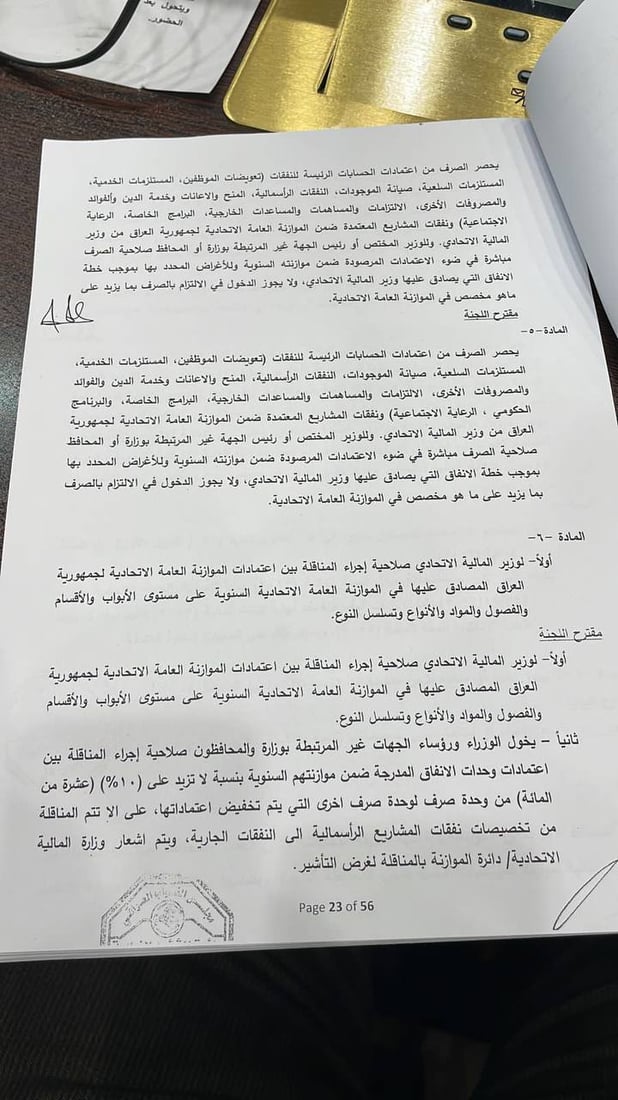 ويتحول بعد
الحضور.
يحصر الصرف من اعتمادات الحسابات الرئيسة للنفقات (تعويضات الموظفين، المستلزمات الخدمية،
المستلزمات السلعية، صيانة الموجودات، النفقات الرأسمالية، المنح والاعانات وخدمة الدين والفوائد
والمصروفات الأخرى، الالتزامات والمساهمات والمساعدات الخارجية، البرامج الخاصة، الرعاية
الاجتماعية) ونفقات المشاريع المعتمدة ضمن الموازنة العامة الاتحادية لجمهورية العراق من وزير
المالية الاتحادي. وللوزير المختص أو رئيس الجهة غير المرتبطة بوزارة أو المحافظ صلاحية الصرف
مباشرة في ضوء الاعتمادات المرصودة ضمن موازنته السنوية وللأغراض المحدد بها بموجب خطة
الانفاق التي يصادق عليها وزير المالية الاتحادي، ولا يجوز الدخول في الالتزام بالصرف بما يزيد على
ماهو مخصص في الموازنة العامة الاتحادية.
مقترح اللجنة
المادة -٥-
يحصر الصرف من اعتمادات الحسابات الرئيسة للنفقات (تعويضات الموظفين، المستلزمات الخدمية،
المستلزمات السلعية، صيانة الموجودات، النفقات الرأسمالية، المنح والاعانات وخدمة الدين والفوائد
والمصروفات الأخرى، الالتزامات والمساهمات والمساعدات الخارجية، البرامج الخاصة، والبرنامج
الحكومي ، الرعاية الاجتماعية) ونفقات المشاريع المعتمدة ضمن الموازنة العامة الاتحادية لجمهورية
العراق من وزير المالية الاتحادي. وللوزير المختص أو رئيس الجهة غير المرتبطة بوزارة أو المحافظ
صلاحية الصرف مباشرة في ضوء الاعتمادات المرصودة ضمن موازنته السنوية وللأغراض المحدد بها
بموجب خطة الانفاق التي يصادق عليها وزير المالية الاتحادي، ولا يجوز الدخول في الالتزام بالصرف
بما يزيد على ما هو مخصص في الموازنة العامة الاتحادية.
المادة -٦-
أولاً- لوزير المالية الاتحادي صلاحية إجراء المناقلة بين اعتمادات الموازنة العامة الاتحادية لجمهورية
العراق المصادق عليها في الموازنة العامة الاتحادية السنوية على مستوى الأبواب والأقسام
والفصول والمواد والأنواع وتسلسل النوع.
مقترح اللجنة
أولاً- لوزير المالية الاتحادي صلاحية إجراء المناقلة بين اعتمادات الموازنة العامة الاتحادية لجمهورية
العراق المصادق عليها في الموازنة العامة الاتحادية السنوية على مستوى الأبواب والأقسام
والفصول والمواد والأنواع وتسلسل النوع.
ثانياً - يخول الوزراء ورؤساء الجهات غير المرتبطة بوزارة والمحافظون صلاحية إجراء المناقلة بين
اعتمادات وحدات الانفاق المدرجة ضمن موازنتهم السنوية بنسبة لا تزيد على (١٠%) (عشرة من
المائة) من وحدة صرف لوحدة صرف اخرى التي يتم تخفيض اعتماداتها، على الا تتم المناقلة
من تخصيصات نفقات المشاريع الرأسمالية الى النفقات الجارية، ويتم اشعار وزارة المالية
الاتحادية/ دائرة الموازنة بالمناقلة لغرض التأشير.
مجلس النواب العراقي
Page 23 of 56